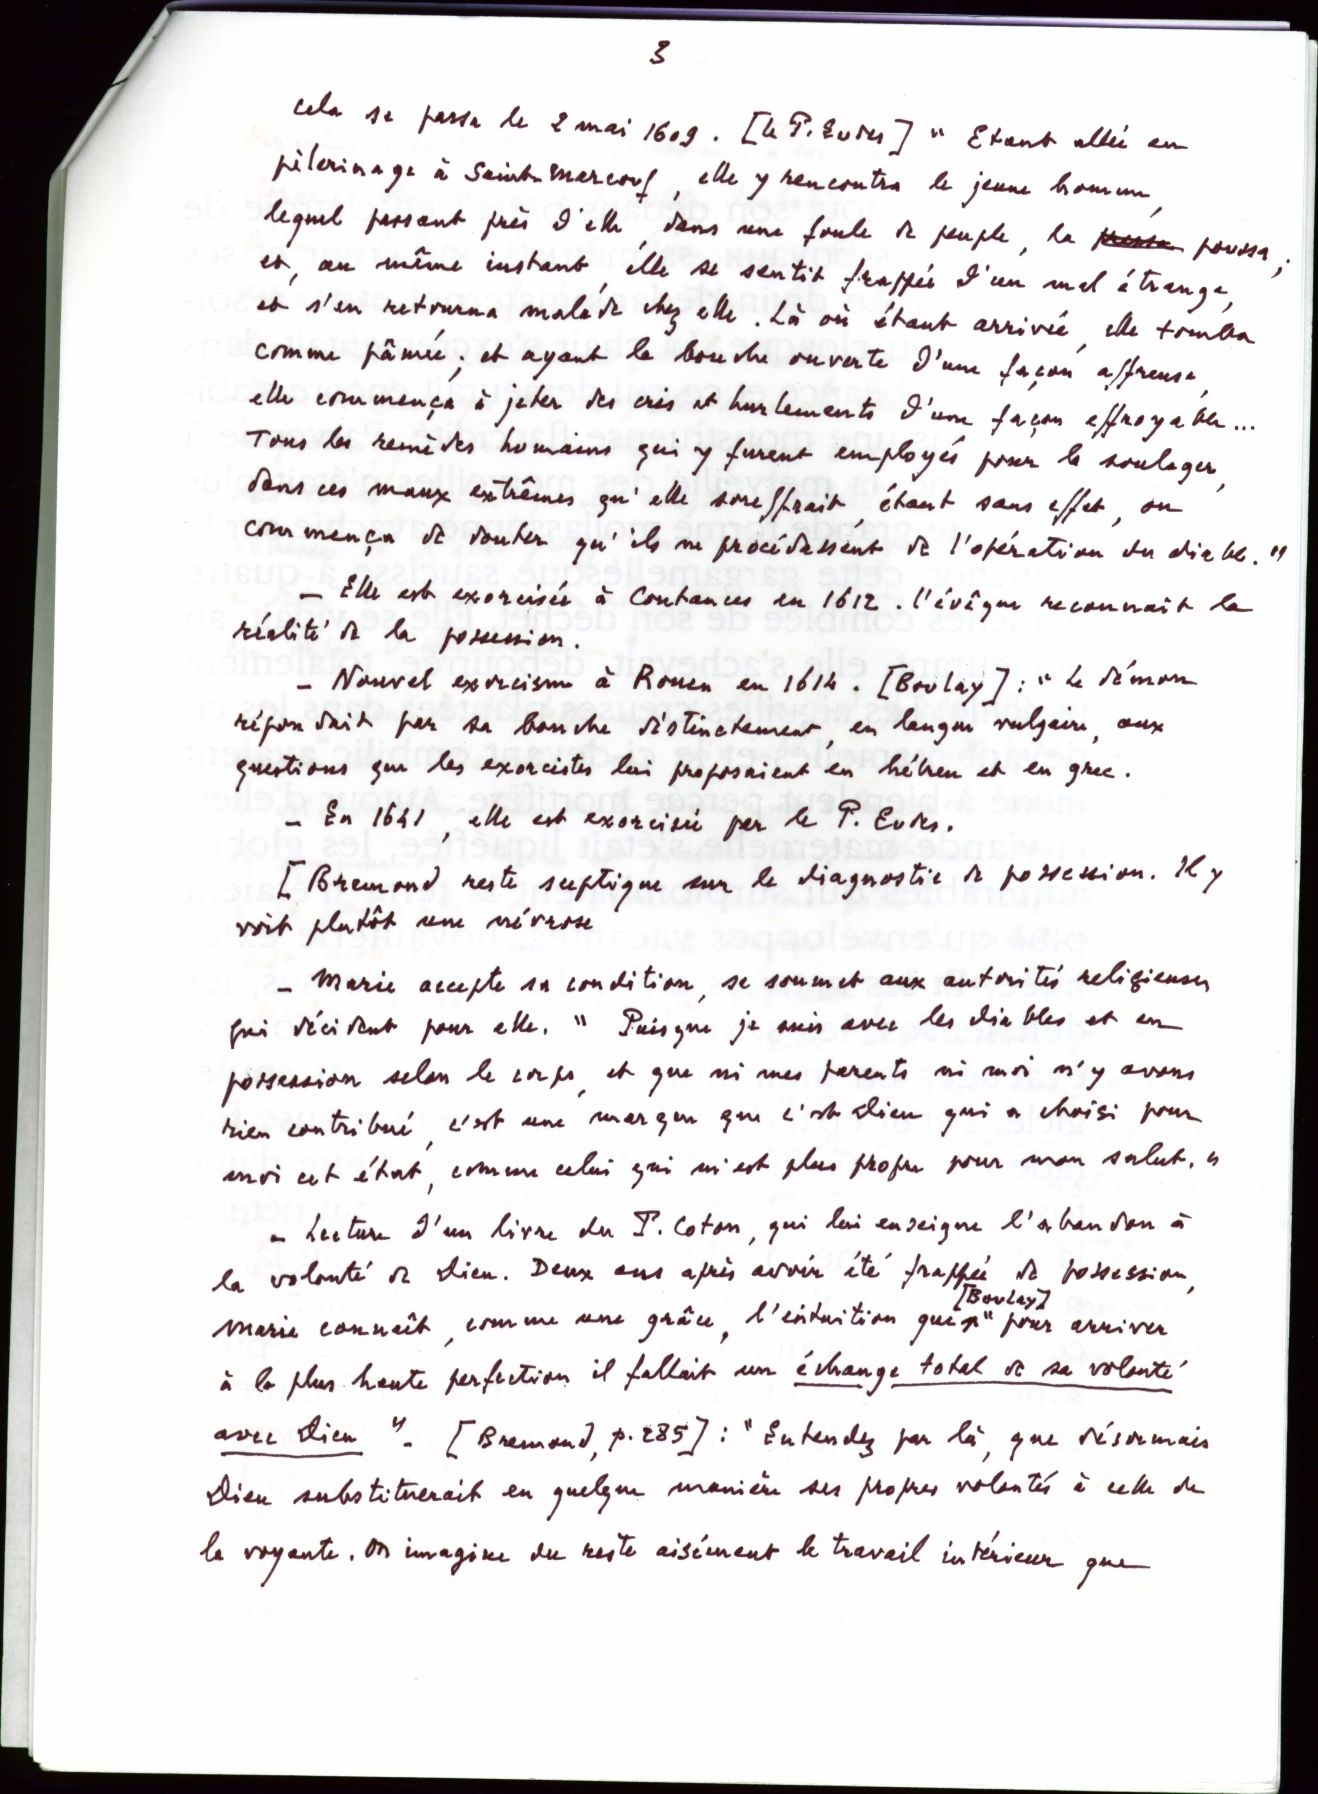 3
cela se passa le 2 mai 1609. [le P. Eudes] " Etant allée en
pèlerinage à Saint-Marcouf, elle y rencontra le jeune homme,
lequel passant près d'elle dans une foule de peuple, la pressa poussa ;
et, au même instant, elle se sentit frappée d'un mal étrange,
et s'en retourna malade chez elle. Là où étant arrivée, elle tomba
comme pâmée ; et ayant la bouche ouverte d'une façon affreuse,
elle commença à jeter des cris et hurlements d'une façon effroyable...
Tous les remèdes humains qui y furent employés pour la soulager,
dans ces maux extrêmes qu'elle souffrait, étant sans effet, on
commença de douter qu'ils ne procédassent de l'opération du diable. "
– Elle est exorcisée à Coutances en 1612. l'évêque reconnaît la
réalité de la possession.
– Nouvel exorcisme à Rouen en 1614. [Boulay] : " Le démon
répondait par sa bouche distinctement, en langue vulgaire, aux
questions que les exorcistes lui proposaient en hébreu et en grec.
– En 1641, elle est exorcisée par le P. Eudes.
[Bremond reste sceptique sur le diagnostic de possession. Il y
voit plutôt une névrose
– Marie accepte sa condition, se soumet aux autorités religieuses
qui décident pour elle. " Puisque je suis avec les diables et en
possession selon le corps, et que ni mes parents ni moi n'y avons
rien contribué, c'est une marque que c'est Dieu qui a choisi pour
moi cet état, comme celui qui m'est plus propre pour mon salut. "
– Lecture d'un livre du P. Coton, qui lui enseigne l'abandon à
la volonté de Dieu. Deux ans après avoir été frappée de possession,
[Boulay]
Marie connaît, comme une grâce, l'intuition que " pour arriver
à la plus haute perfection il fallait un échange total de sa volonté
avec Dieu ". [Bremond, p. 285] : " Entendez par là, que désormais
Dieu substituerait en quelque manière ses propres volontés à celle de
la voyante. On imagine du reste aisément le travail intérieur que